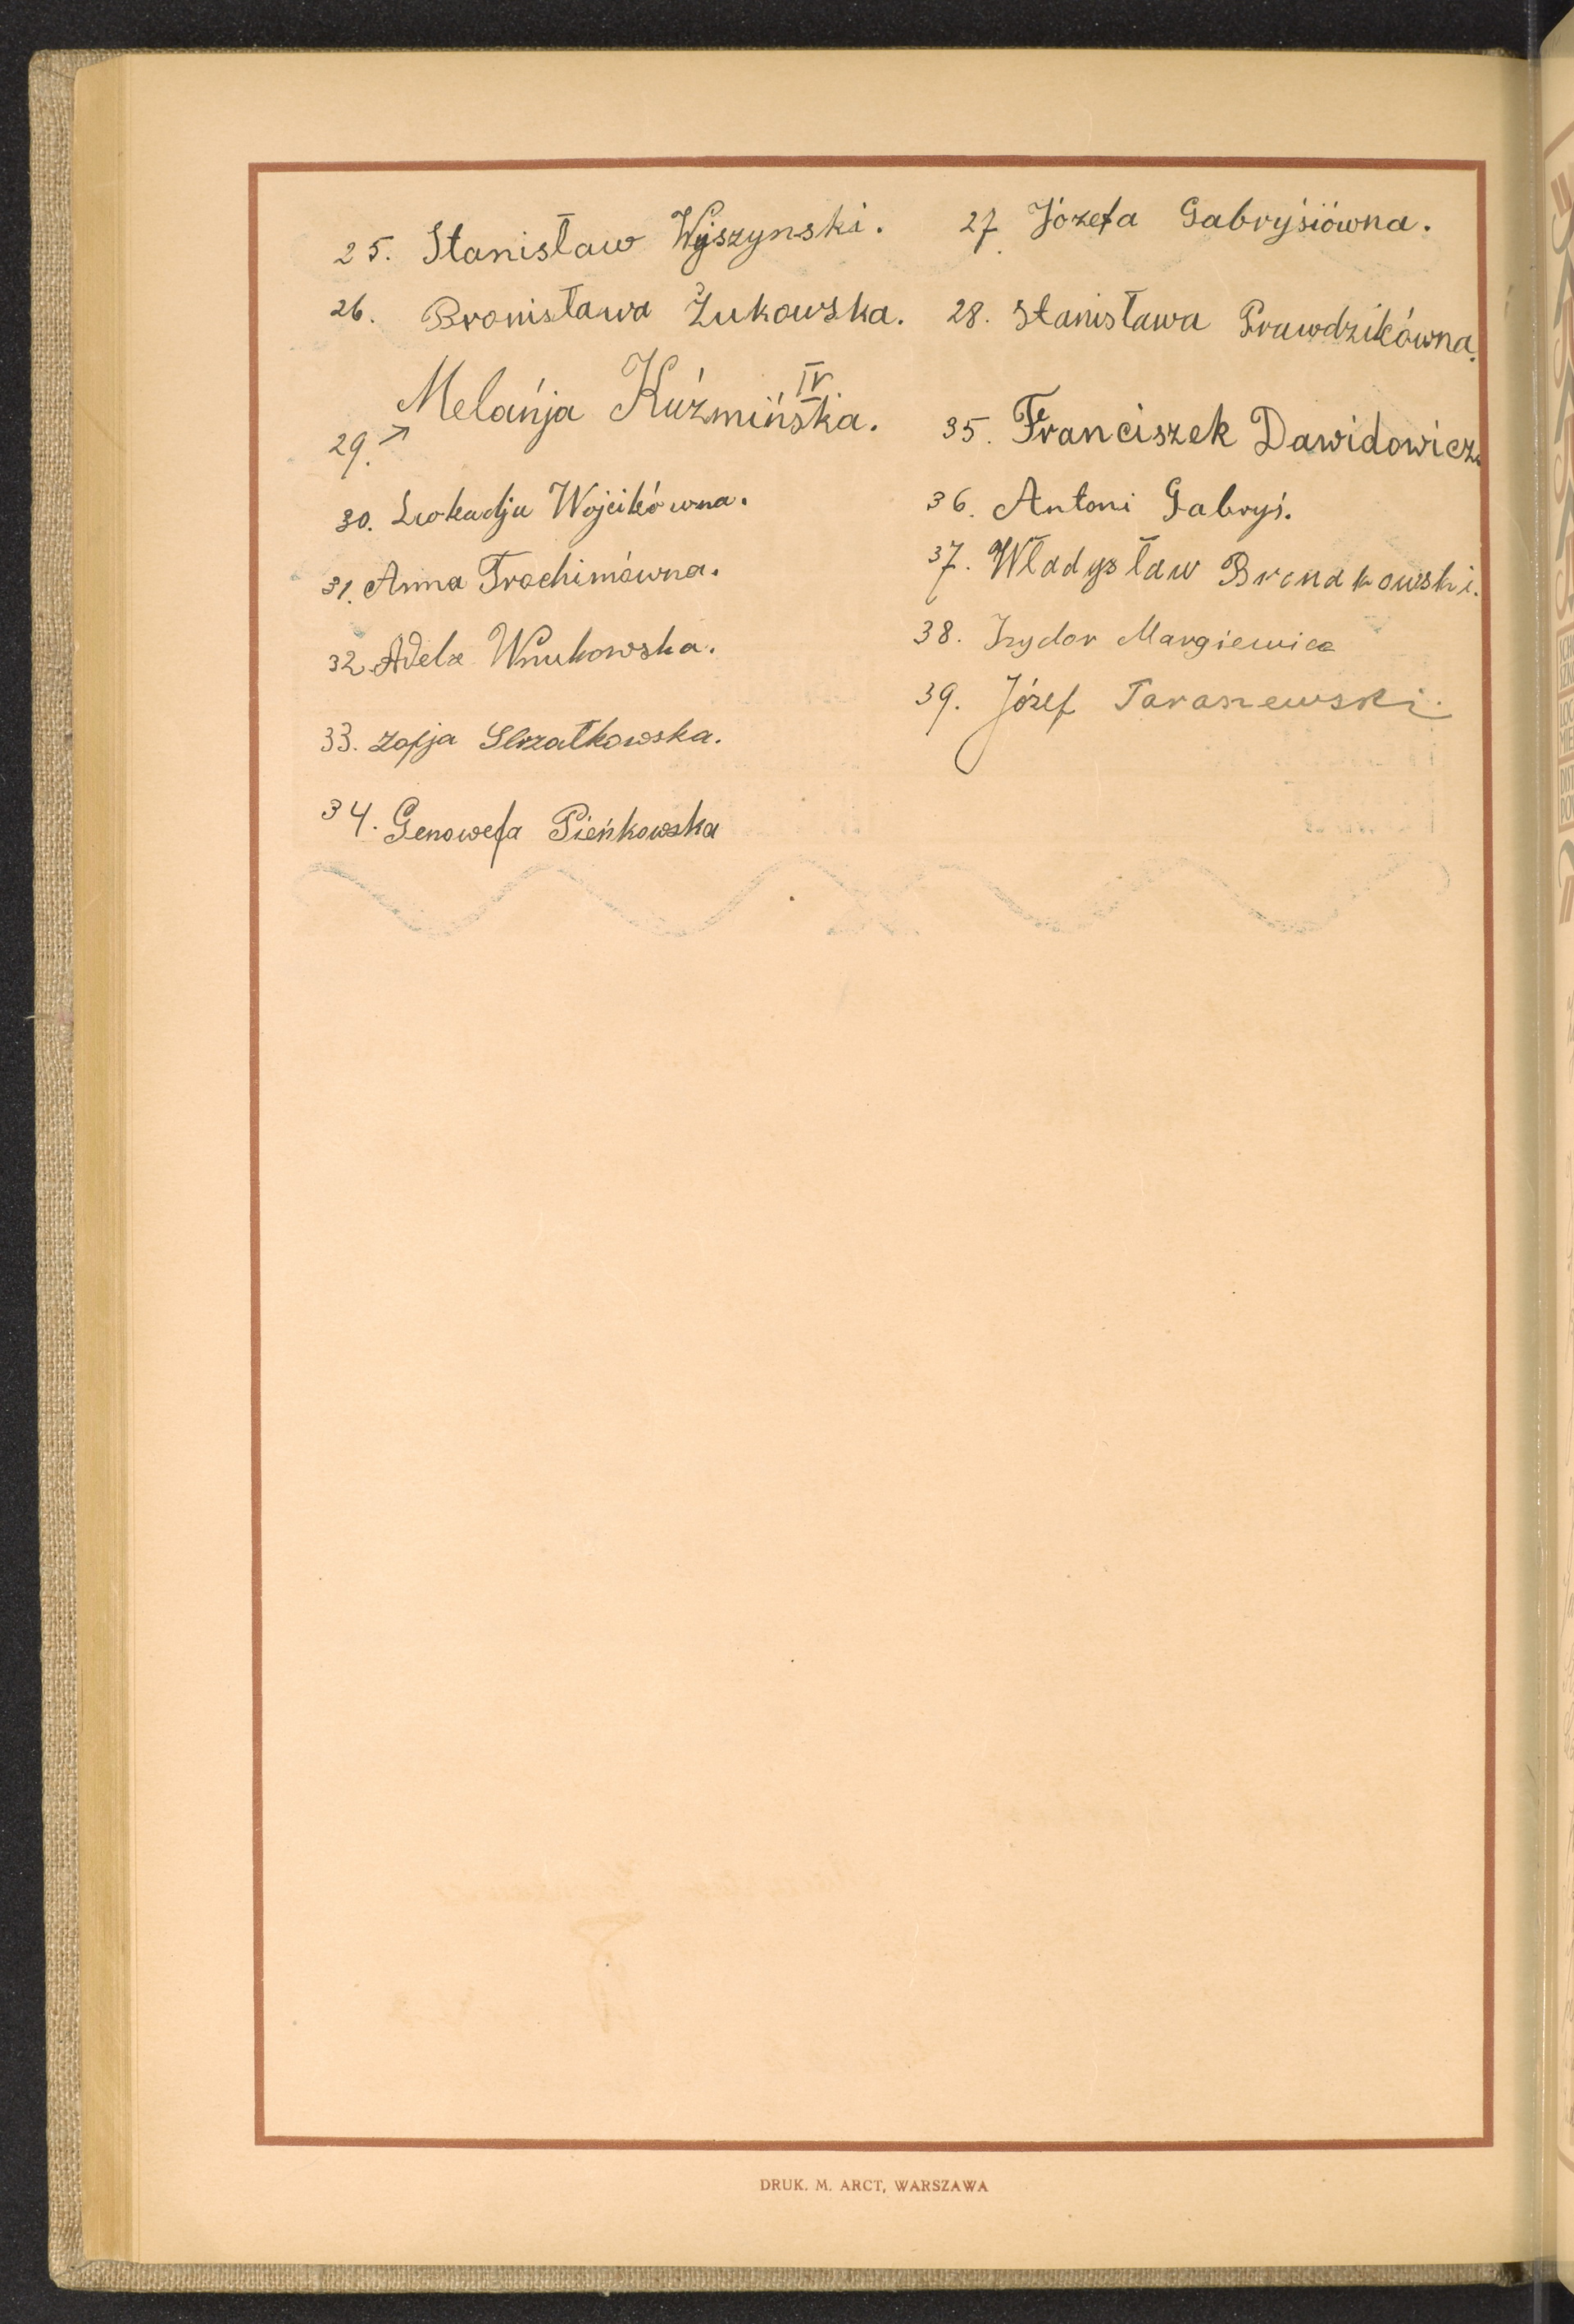 25. Stanisław Wyszynski.
26. Bronisława Żukowska.
27. Józefa Gabrysiówna.
28. Stanisława Prawdzikówna.
IV
29. Melańja Kuźmińska.
30. Leokadja Wojcikówna.
31. Anna Trochimówna.
32. Adela Wnukowska.
33. Zofja Strzałkowska.
34. Genowefa Pieńkowska
35. Franciszek Dawidowicz.
36. Antoni Gabryś.
37. Władysław Bronakowski.
38. Izydor Margiewicz
39. Józef Taraszewski.
DRUK. M. ARCT, WARSZAWA